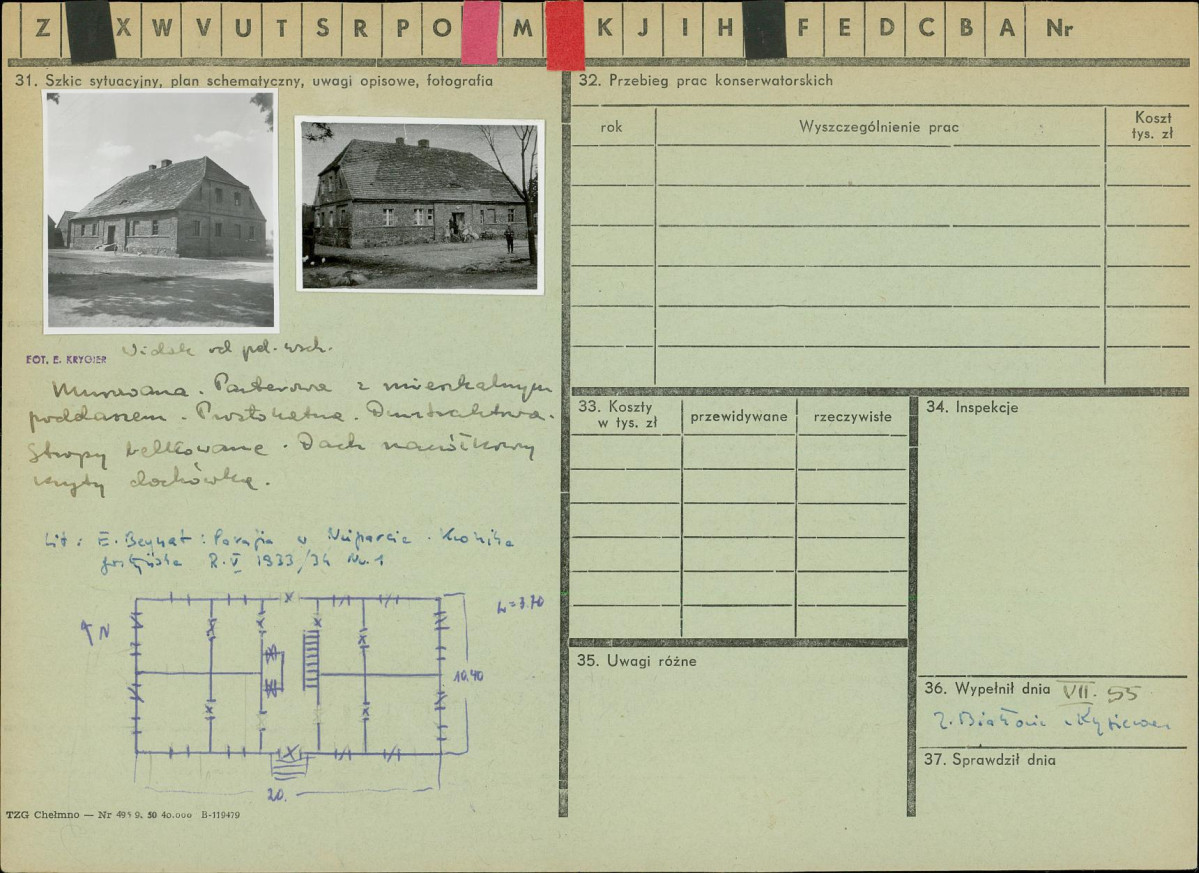 Z X W V U T S R P O M K J I H F E D C B A Nr
31. Szkic sytuacyjny, plan schematyczny, uwagi opisowe, fotografia
FOT. E. KRYGIER
Widok od płd.-wsch.
Murowana. Parterowa z mieszkalnym
poddaszem. Prostokątna. Dwutraktowa.
Stropy belkowane. Dach naczółkowy
kryty dachówką.
Lit: E. Beynat: Parafja w Nieparcie. Kronika
gostyńska R. V 1933/34 Nr. 1
N
h = 3.70
10.40
20.
TZG Chełmno — Nr 495 9. 50 40.000 B-119479
32. Przebieg prac konserwatorskich
rok
Wyszczególnienie prac
Koszt
tys. zł
33. Koszty
w tys. zł
przewidywane
rzeczywiste
34. Inspekcje
35. Uwagi różne
36. Wypełnił dnia VII. 55
Z. Białowicz-Krygierowa
37. Sprawdził dnia